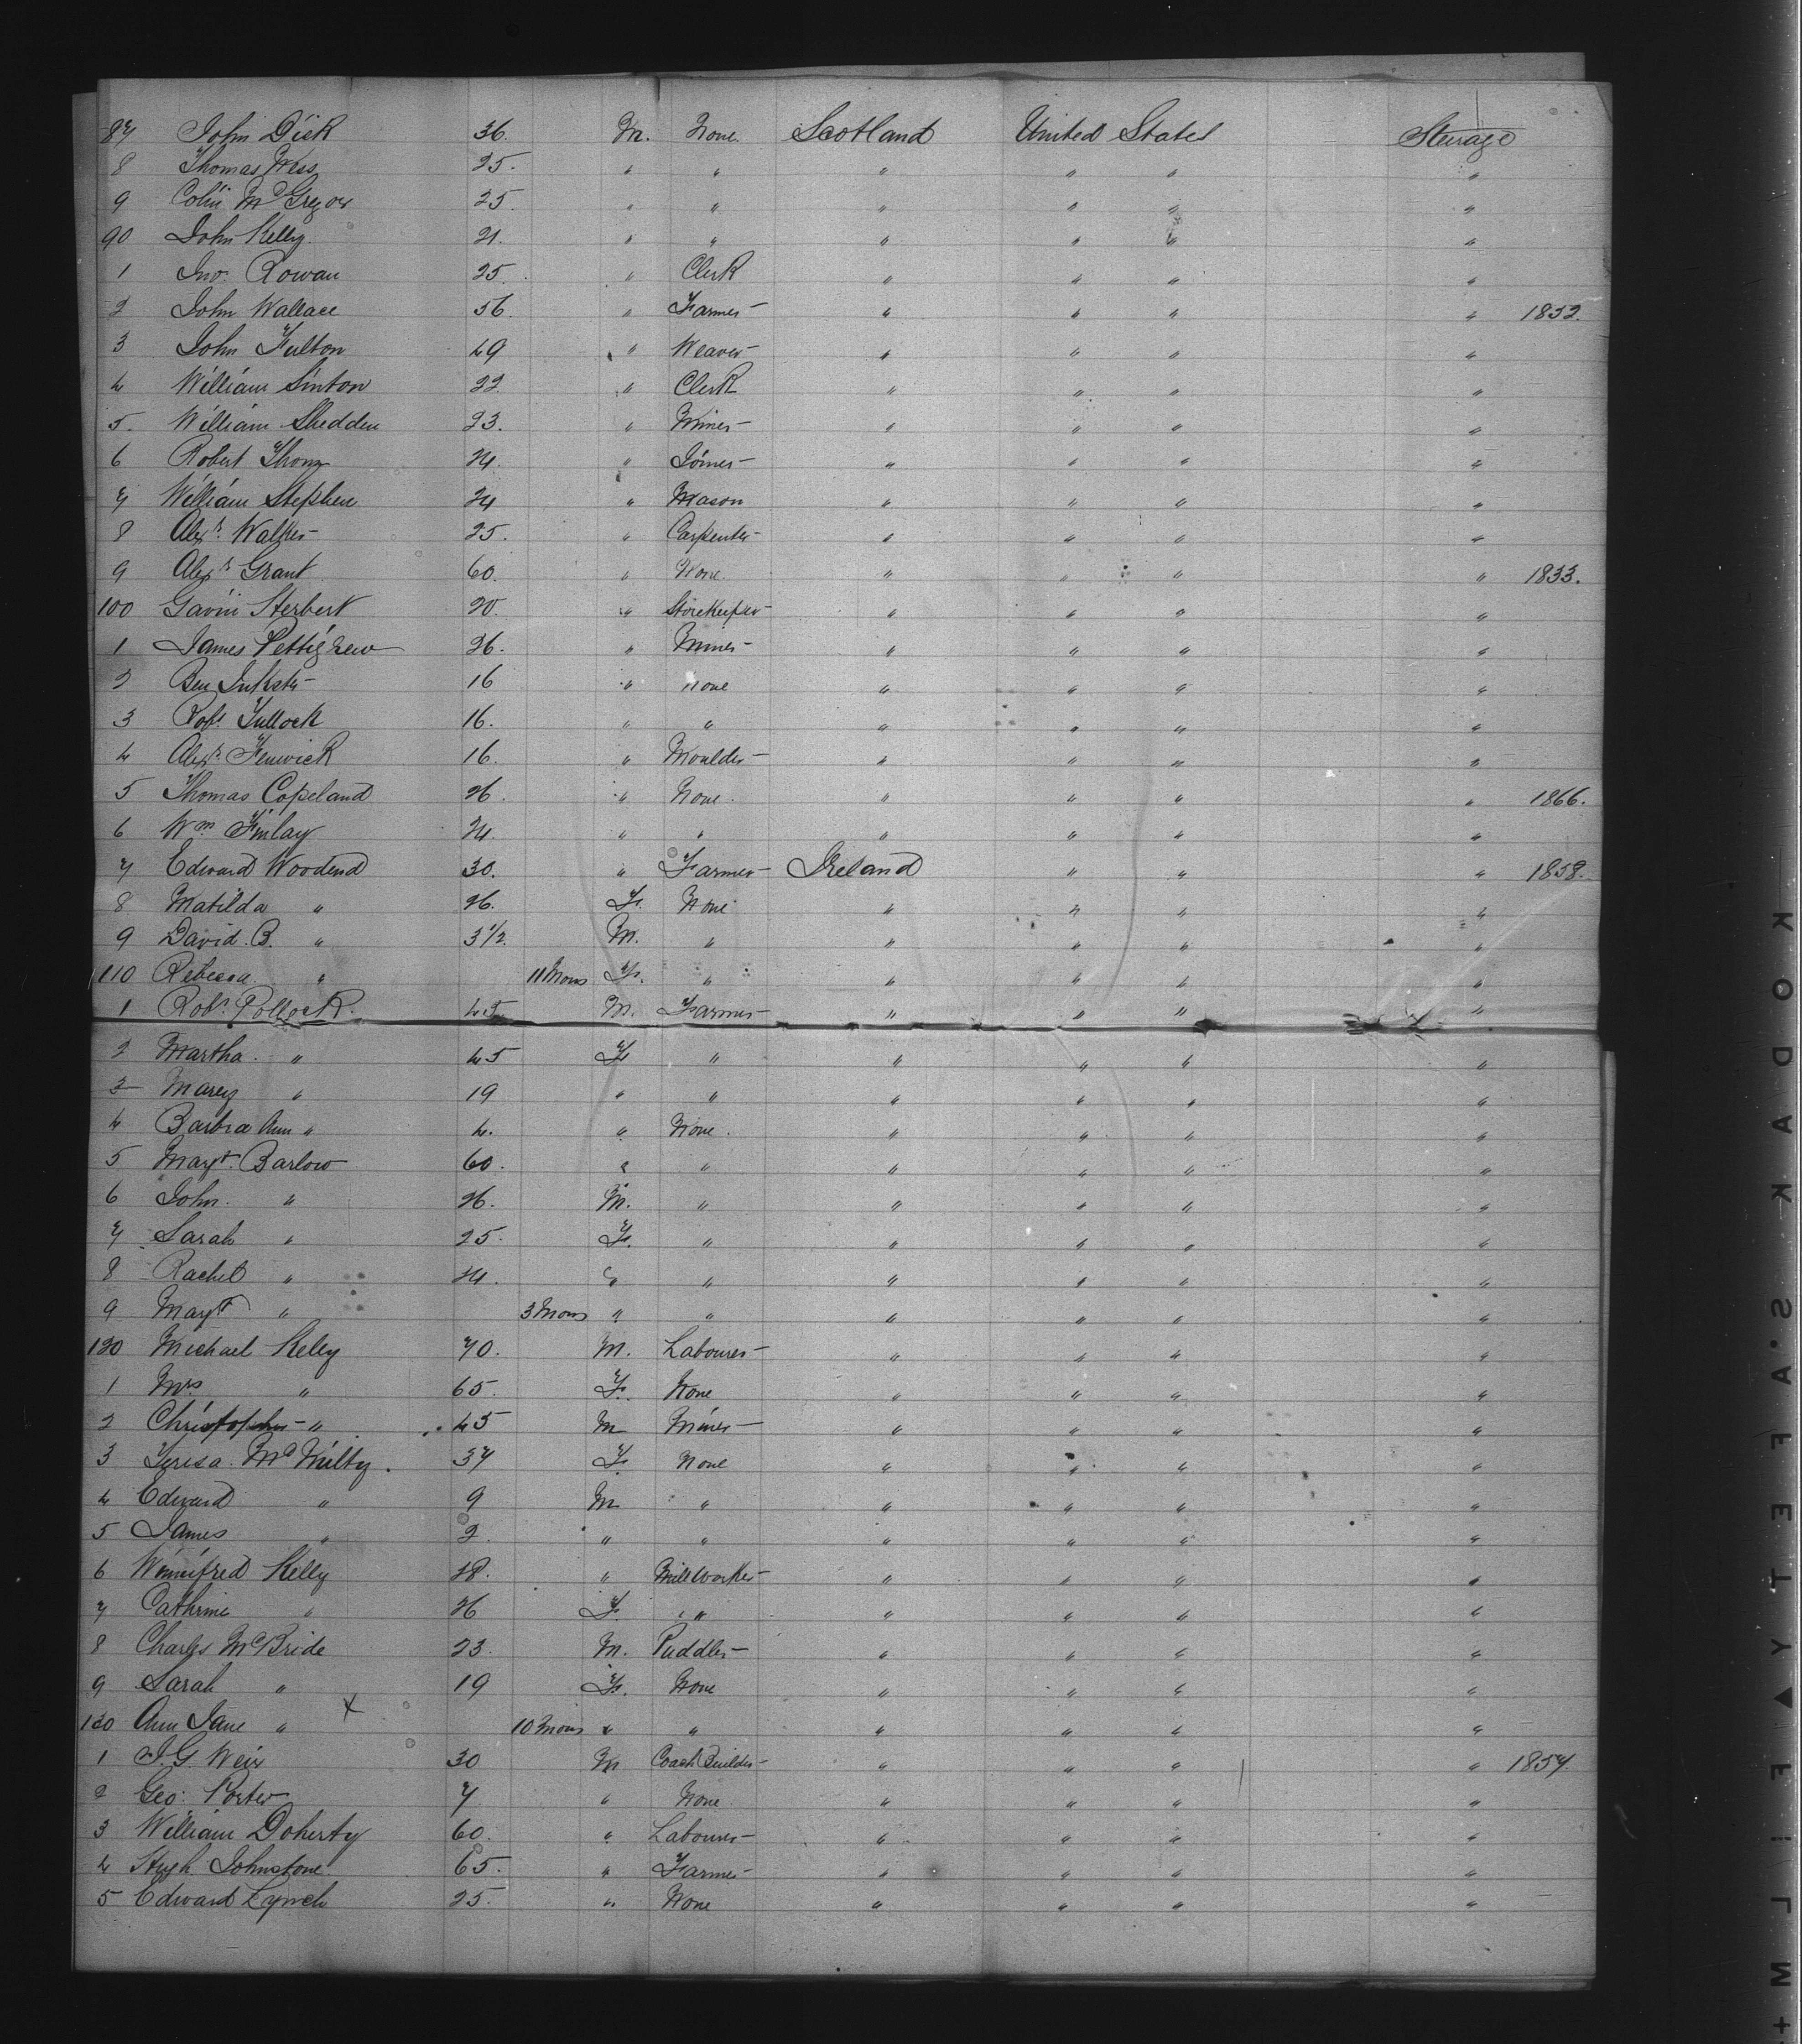 87 John Dick 36. M. None. Scotland United States Steerage
8 Thomas Wess 25. " " " " " "
9 Colin McGregor 25. " " " " " "
90 John Kelly. 21. " " " " " "
1 Jno. Rowan 25. " Clerk " " " "
2 John Wallace 56. " Farmer " " " " 1852.
3 John Fulton 49 " Weaver " " " "
4 William Sinton 22. " Clerk " " " "
5. William Shedden 23. " Miner " " " "
6 Robert Thom 24. " Joiner " " " "
7 William Stephen 24 " Mason " " " "
8 Alexr. Walker 25. " Carpenter " " " "
9 Alexr. Grant 60. " None. " " " " 1833.
100 Gavin Herbert 20. " Storekeeper " " " "
1 James Pettigrew 26. " Miner " " " "
2 Ben Inkster 16 " None " " " "
3 Robt. Tullock 16. " " " " " "
4 Alexr. Fenwick 16. " Moulder " " " "
5 Thomas Copeland 26. " None. " " " " 1866.
6 Wm. Finlay 24. " " " " " "
7 Edward Woodend 30. " Farmer Ireland " " " 1858.
8 Matilda " 26. F. None " " " "
9 David. B. " 3 1/2. M. " " " " "
110 Rebecca. " 11 Mons F. " " " " "
1 Robt. Pollock. 45. M. Farmer " " " "
2 Martha. " 45 F " " " " "
3 Mary " 19 " " " " " "
4 Barbra Ann " 4. " None. " " " "
5 Magt. Barlow 60. " " " " " "
6 John. " 26. M. " " " " "
7 Sarah " 25. F. " " " " "
8 Rachel " 24. " " " " " "
9 Magt " 3 Mons " " " " " "
120 Michael Kelly 70. M. Labourer " " " "
1 Mrs " 65. F. None " " " "
2 Christopher " 45 M Miner " " " "
3 Teresa McNulty. 37 F. None " " " "
4 Edward " 9 M " " " " "
5 James " 2 " " " " " "
6 Winnifred Kelly 28. " Millworker " " " "
7 Cathrine " 26 F. " " " " " "
8 Charles McBride 23. M. Puddler " " " "
9 Sarah " 19 F. None " " " "
130 Ann Jane " X 10 Mons " " " " " "
1 J. G. Weir 30 M Coach Builder " " " " 1857.
2 Geo: Porter 7 " None. " " " "
3 William Doherty 60. " Labourer " " " "
4 Hugh Johnstone 65. " Farmer " " " "
5 Edward Lynch 25. " None " " " "
KODAK S.A.FETY ▲ FILM +